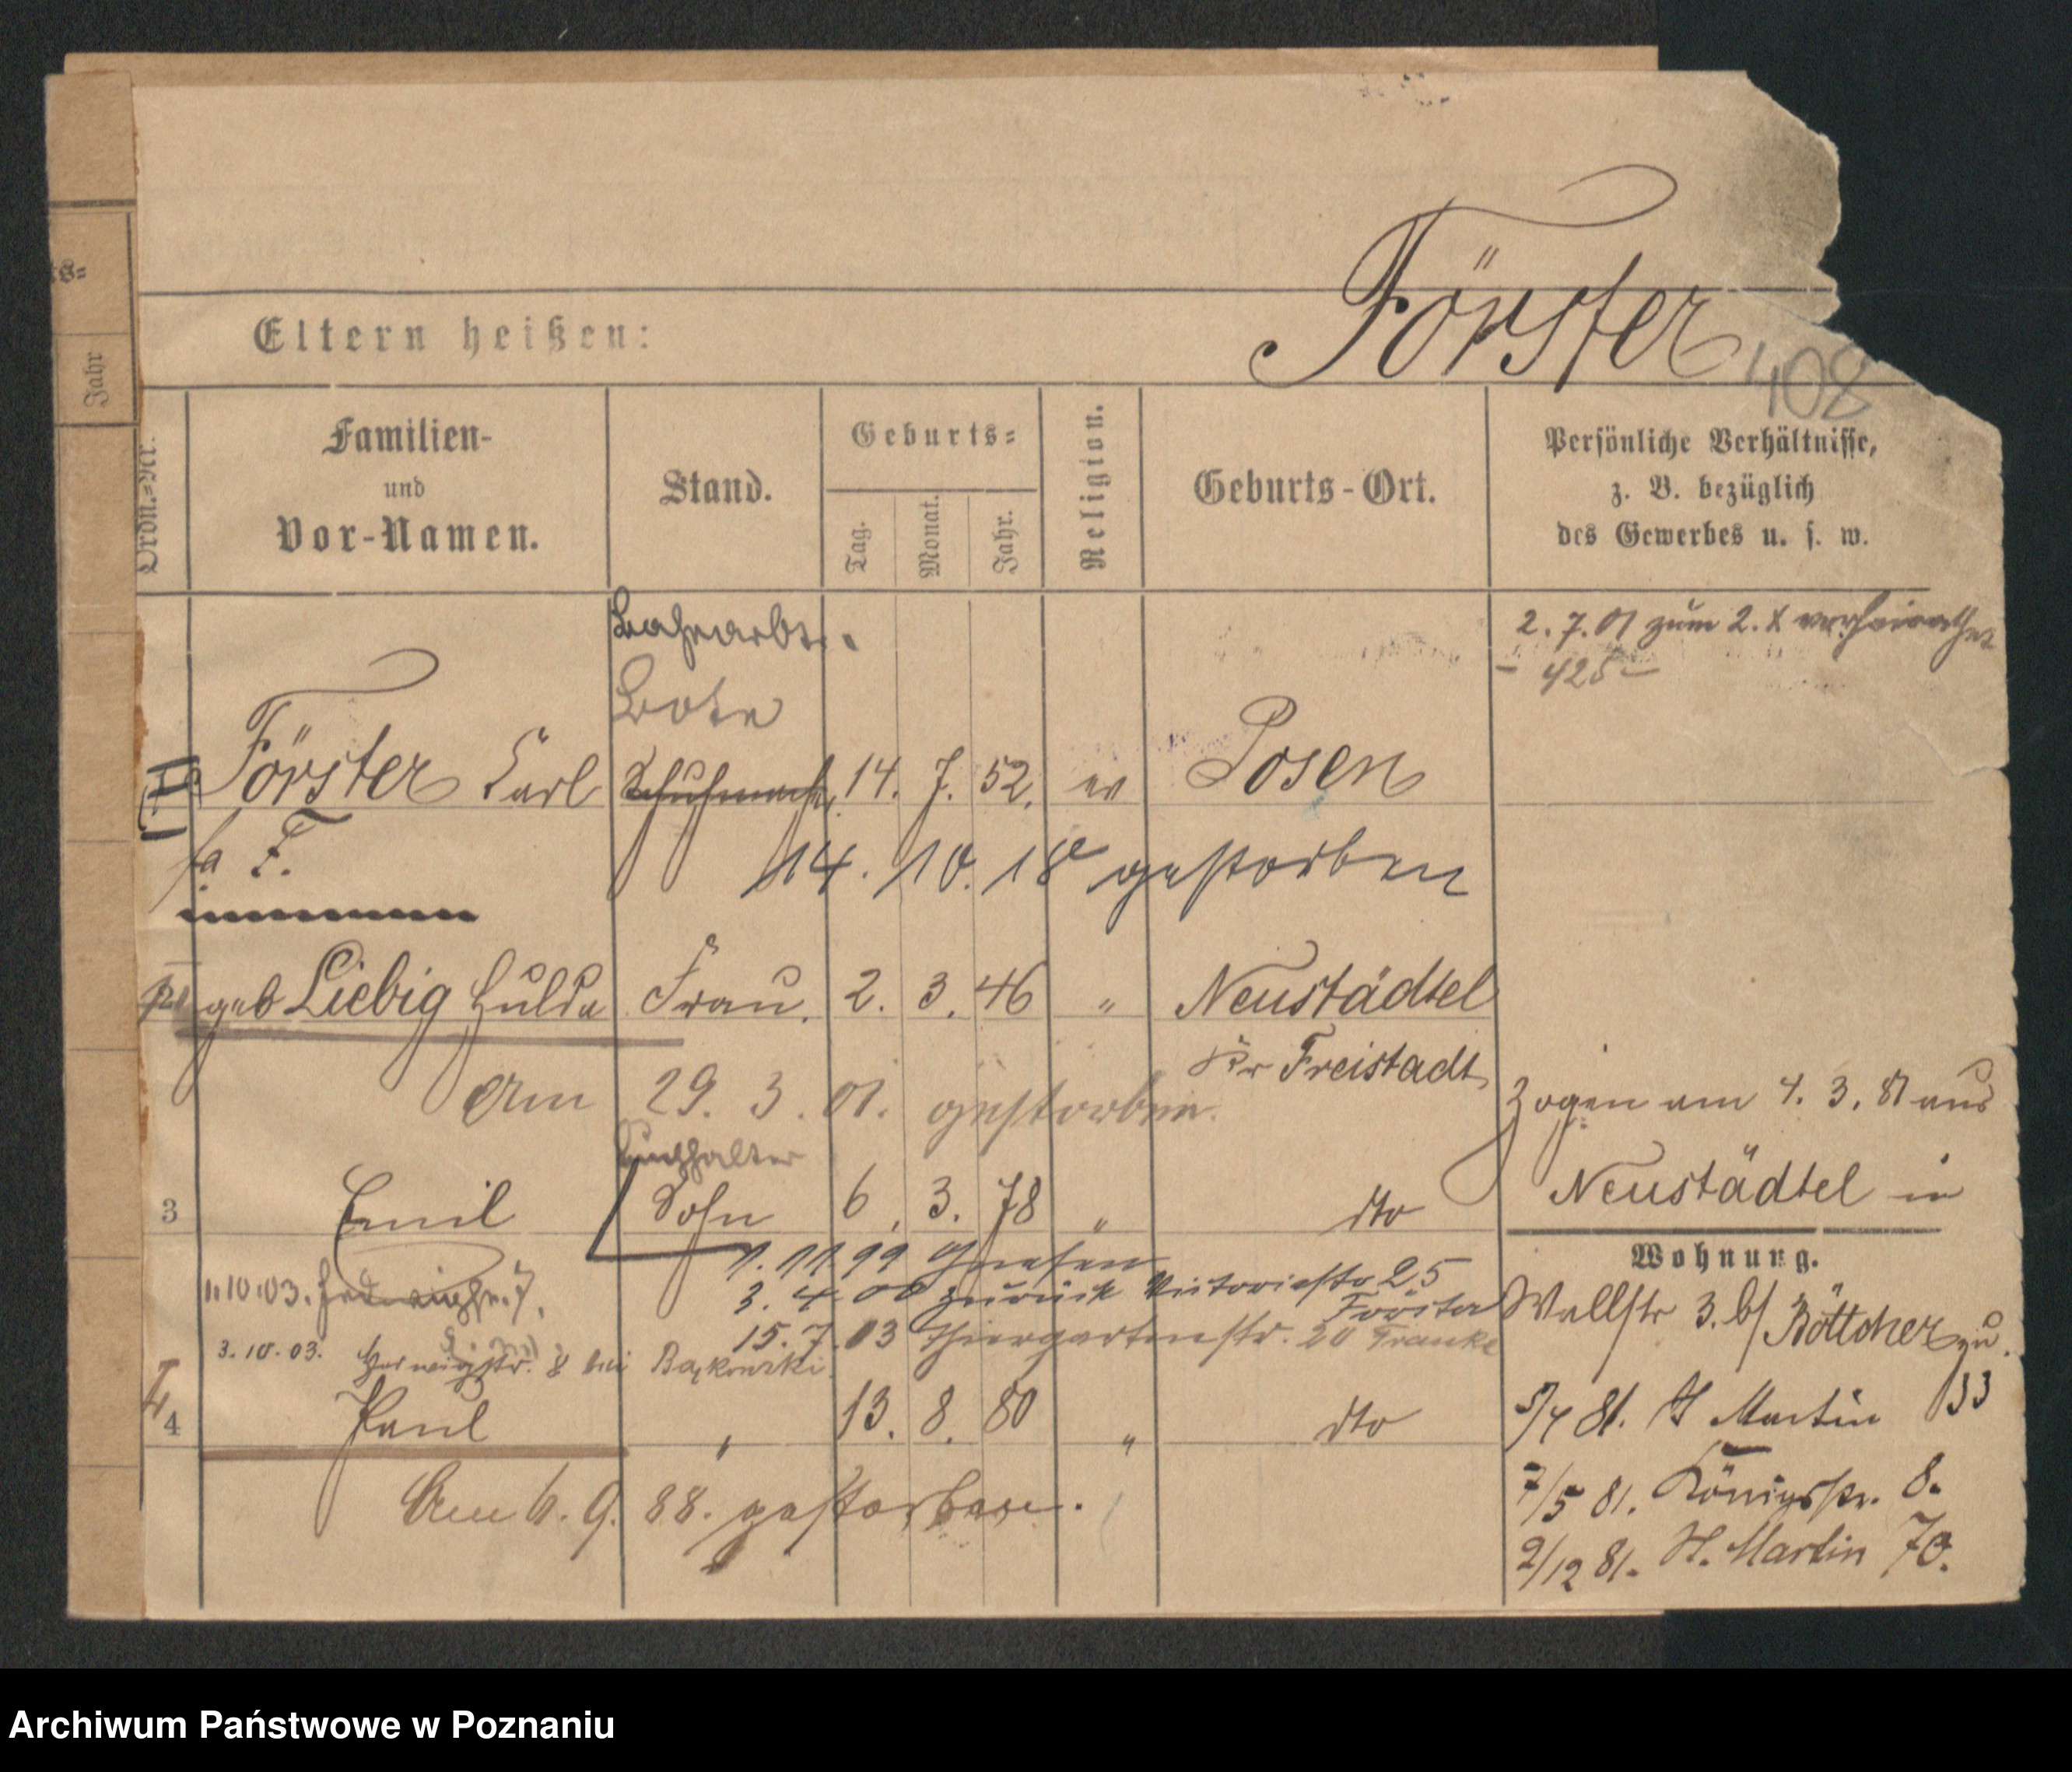 Förster
ts=
Eltern heißen:
408
Jahr
Ordn.=Nr.
Familien-
und
Vor-Namen.
Stand.
Geburts=
Tag.
Monat.
Jahr.
Religion.
Geburts-Ort.
Persönliche Verhältnisse,
z. B. bezüglich
des Gewerbes u. s. w.
Bahnarbt.
2. 7. 01 zum 2. X verheirathet
Bote
- 425 -
Förster Carl Schuhmach. 14. 7. 52. ev Posen
F.
14. 10. 18 gestorben
geb Liebig Hulda Frau. 2. 3. 46 " Neustädtel
Kr Freistadt
Am 29. 3. 01. gestorben.
Zogen am 4. 3. 81 aus
Buchhalter
Neustädtel in
3 Emil Sohn 6. 3. 78 " dto
Wohnung.
1. 11. 99 Gnesen
3. 4. 00 zurück Victoriastr 25
Förster
1.10.03. Hedwigstr. 7.
Wallstr 3. b/ Böttcher zu.
15. 7. 03 Thiergartenstr. 20 Franke
3.10.03. Hedwigstr. 8 bei Bąkowski.
4 Paul " 13. 8. 80 " dto
5/4 81. St Martin 33
Am 6. 9. 88. gestorben.
7/5 81. Königsstr. 8.
2/12 81. St. Martin 70.
Archiwum Państwowe w Poznaniu